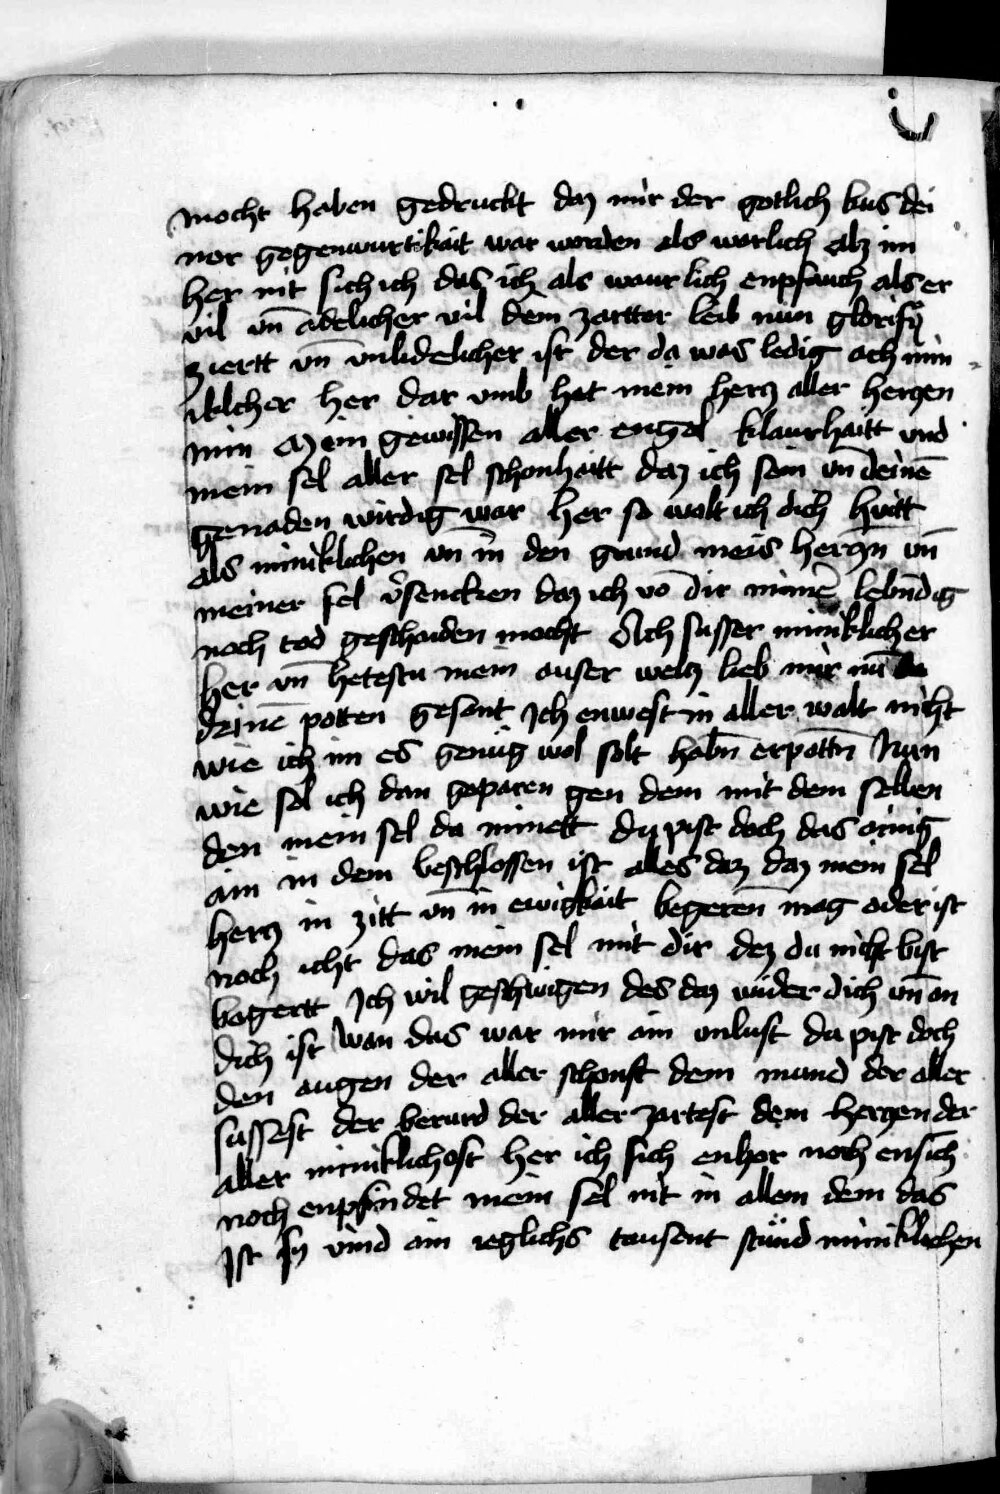 mocht haben gedruckt daz mir der gotlich kus dei
ner gegenwurtikait war worden als warlich alz im
her nit sich ich das ich als waurlich enpfauch als er
vil vn̄ adelicher vil dem zartter leib nun glorify
ziertt vn̄ vnlidelicher ist der da was ledig ach min
iklcher her dar vmb het mein hercz aller herczen
min mein gewissen aller engel klaurhaitt vnd
mein sel aller sel schonhaitt daz ich sein vn̄ deinē
genaden wirdig war her so wolt ich dich hutt
als miniklichen vn̄ in den grund meis herczn vn̄
meiner sel v̄sencken daz ich vō dir nimē lebn̄dig
noch tod geschaiden mocht Ach susser miniklicher
her vn̄ hetestu mein auser welcz lieb mir nū
deinē potten gesant Ich enwest in aller walt nicht
wie ich im es genug wol solt habn̄ erpottn̄ Nun
wie sol ich dan geparen gen dem mit dem selben
den mein sel da minett du pist doch das ainig
ain in dem beschlossen ist alles daz daz mein sel
hercz in zitt vn̄ in ewigkait begeren mag oder ist
noch icht das mein sel mit dir dez du nicht bist
begertt Ich wil geschwigen des daz wider dich vn̄ on
dich ist wan das war mir ain vnlust du pist doch
den augen der aller schonst dem mund der aller
sussest der berurd der aller zartest dem herczen der
aller miniklichost her ich sich enhor noch ensich
noch enpfindet mein sel nit in allem dem das
Ist sy vind ain ieglichs tausent stund miniklichen